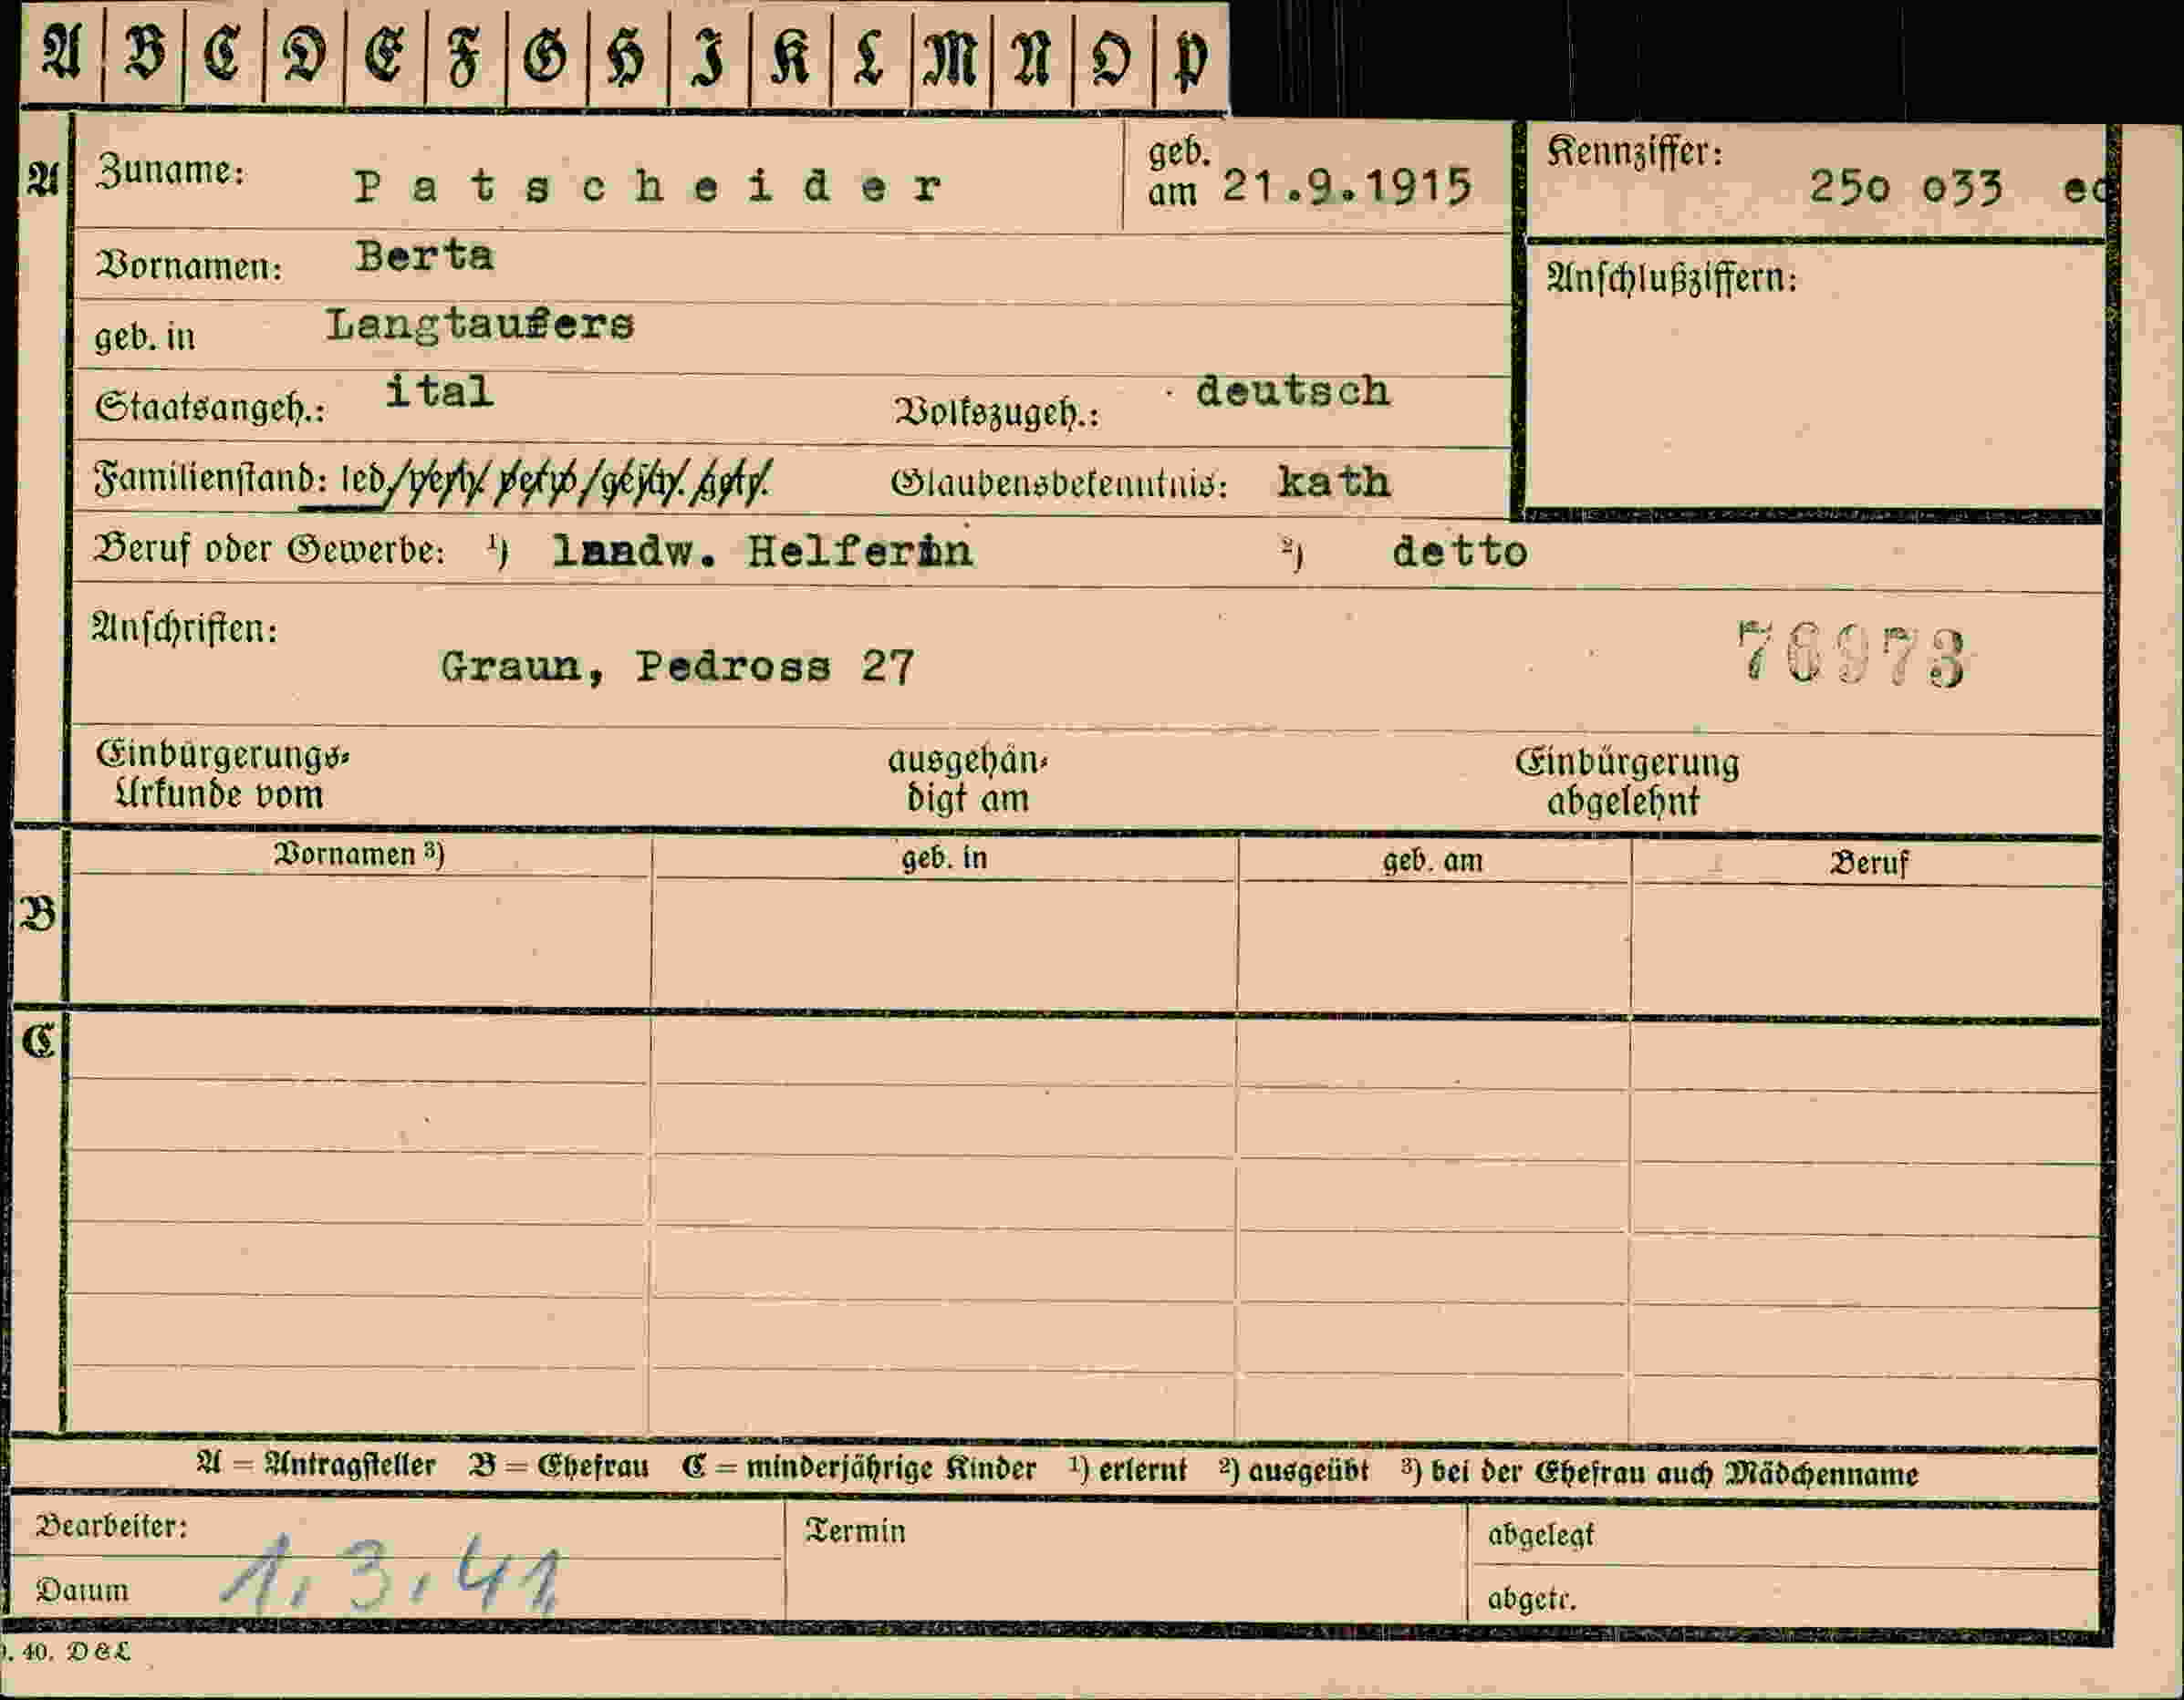 A B C D E F G H I K L M N O P
A Zuname: Patscheider geb. am 21.9.1915 Kennziffer: 250 033
Vornamen: Berta Anschlußziffern:
geb. in Langtaufers
Staatsangeh.: ital Volkszugeh.: deutsch
Familienstand: led/verh./verw/gesch./getr. Glaubensbekenntnis: kath
Beruf oder Gewerbe: ¹) landw. Helferin ²) detto
Anschriften:
Graun, Pedross 27 76973
Einbürgerungs- ausgehän- Einbürgerung
Urkunde vom digt am abgelehnt
Vornamen ³) geb. in geb. am Beruf
B
C
A = Antragsteller B = Ehefrau C = minderjährige Kinder ¹) erlernt ²) ausgeübt ³) bei der Ehefrau auch Mädchenname
Bearbeiter: Termin abgelegt
Datum 1.3.41 abgetr.
40. D&L